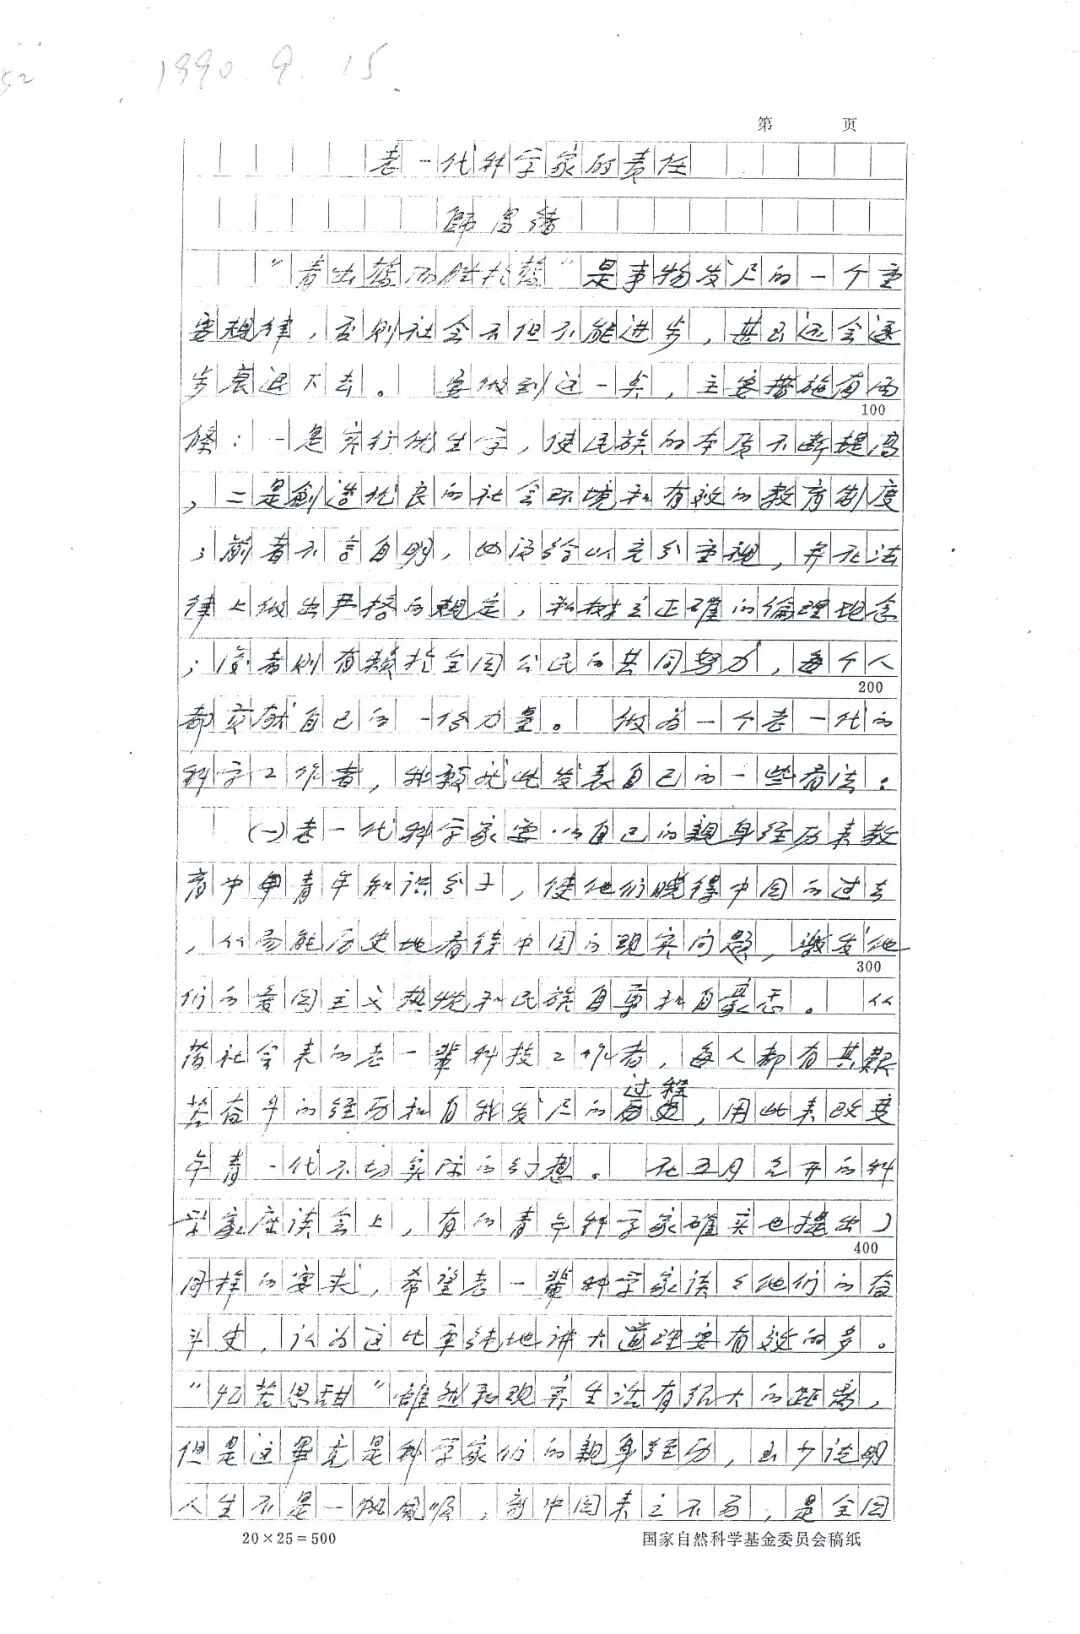 52
1990.9.15
第 页
老一代科学家的责任
师昌绪
“青出蓝而胜于蓝”是事物发展的一个重
要规律，否则社会不但不能进步，甚至还会逐
步衰退下去。要做到这一关，主要措施有两
条：一是实行优生学，使民族的本质不断提高
，二是创造优良的社会环境和有效的教育制度
；前者不言自明，必须给以充分重视，并在法
律上做出严格的规定，和树立正确的倫理观念
；后者则有赖于全国公民的共同努力，每个人
100
都贡献自己的一份力量。做为一个老一代的
200
科学工作者，我愿就此发表自己的一些看法：
(一)老一代科学家要以自己的亲身经历来教
育中青年知识分子，使他们晓得中国的过去
，从而能历史地看待中国的现实问题，激发他
300
们的爱国主义热忱和民族自尊和自豪感。从
旧社会来的老一辈科技工作者，每人都有其艰
苦奋斗的经历和自我发展的过程，用此来改变
年青一代不切实际的幻想。在五月召开的科
学家座谈会上，有的青年科学家确实也提出了
400
同样的要求，希望老一辈科学家谈谈他们的奋
斗史，认为这比单纯地讲大道理要有效的多。
“忆苦思甜”虽然和现实生活有很大的距离，
但是这毕竟是科学家们的亲身经历，至少说明
人生不是一帆风顺，新中国来之不易，是全国
20×25=500
国家自然科学基金委员会稿纸